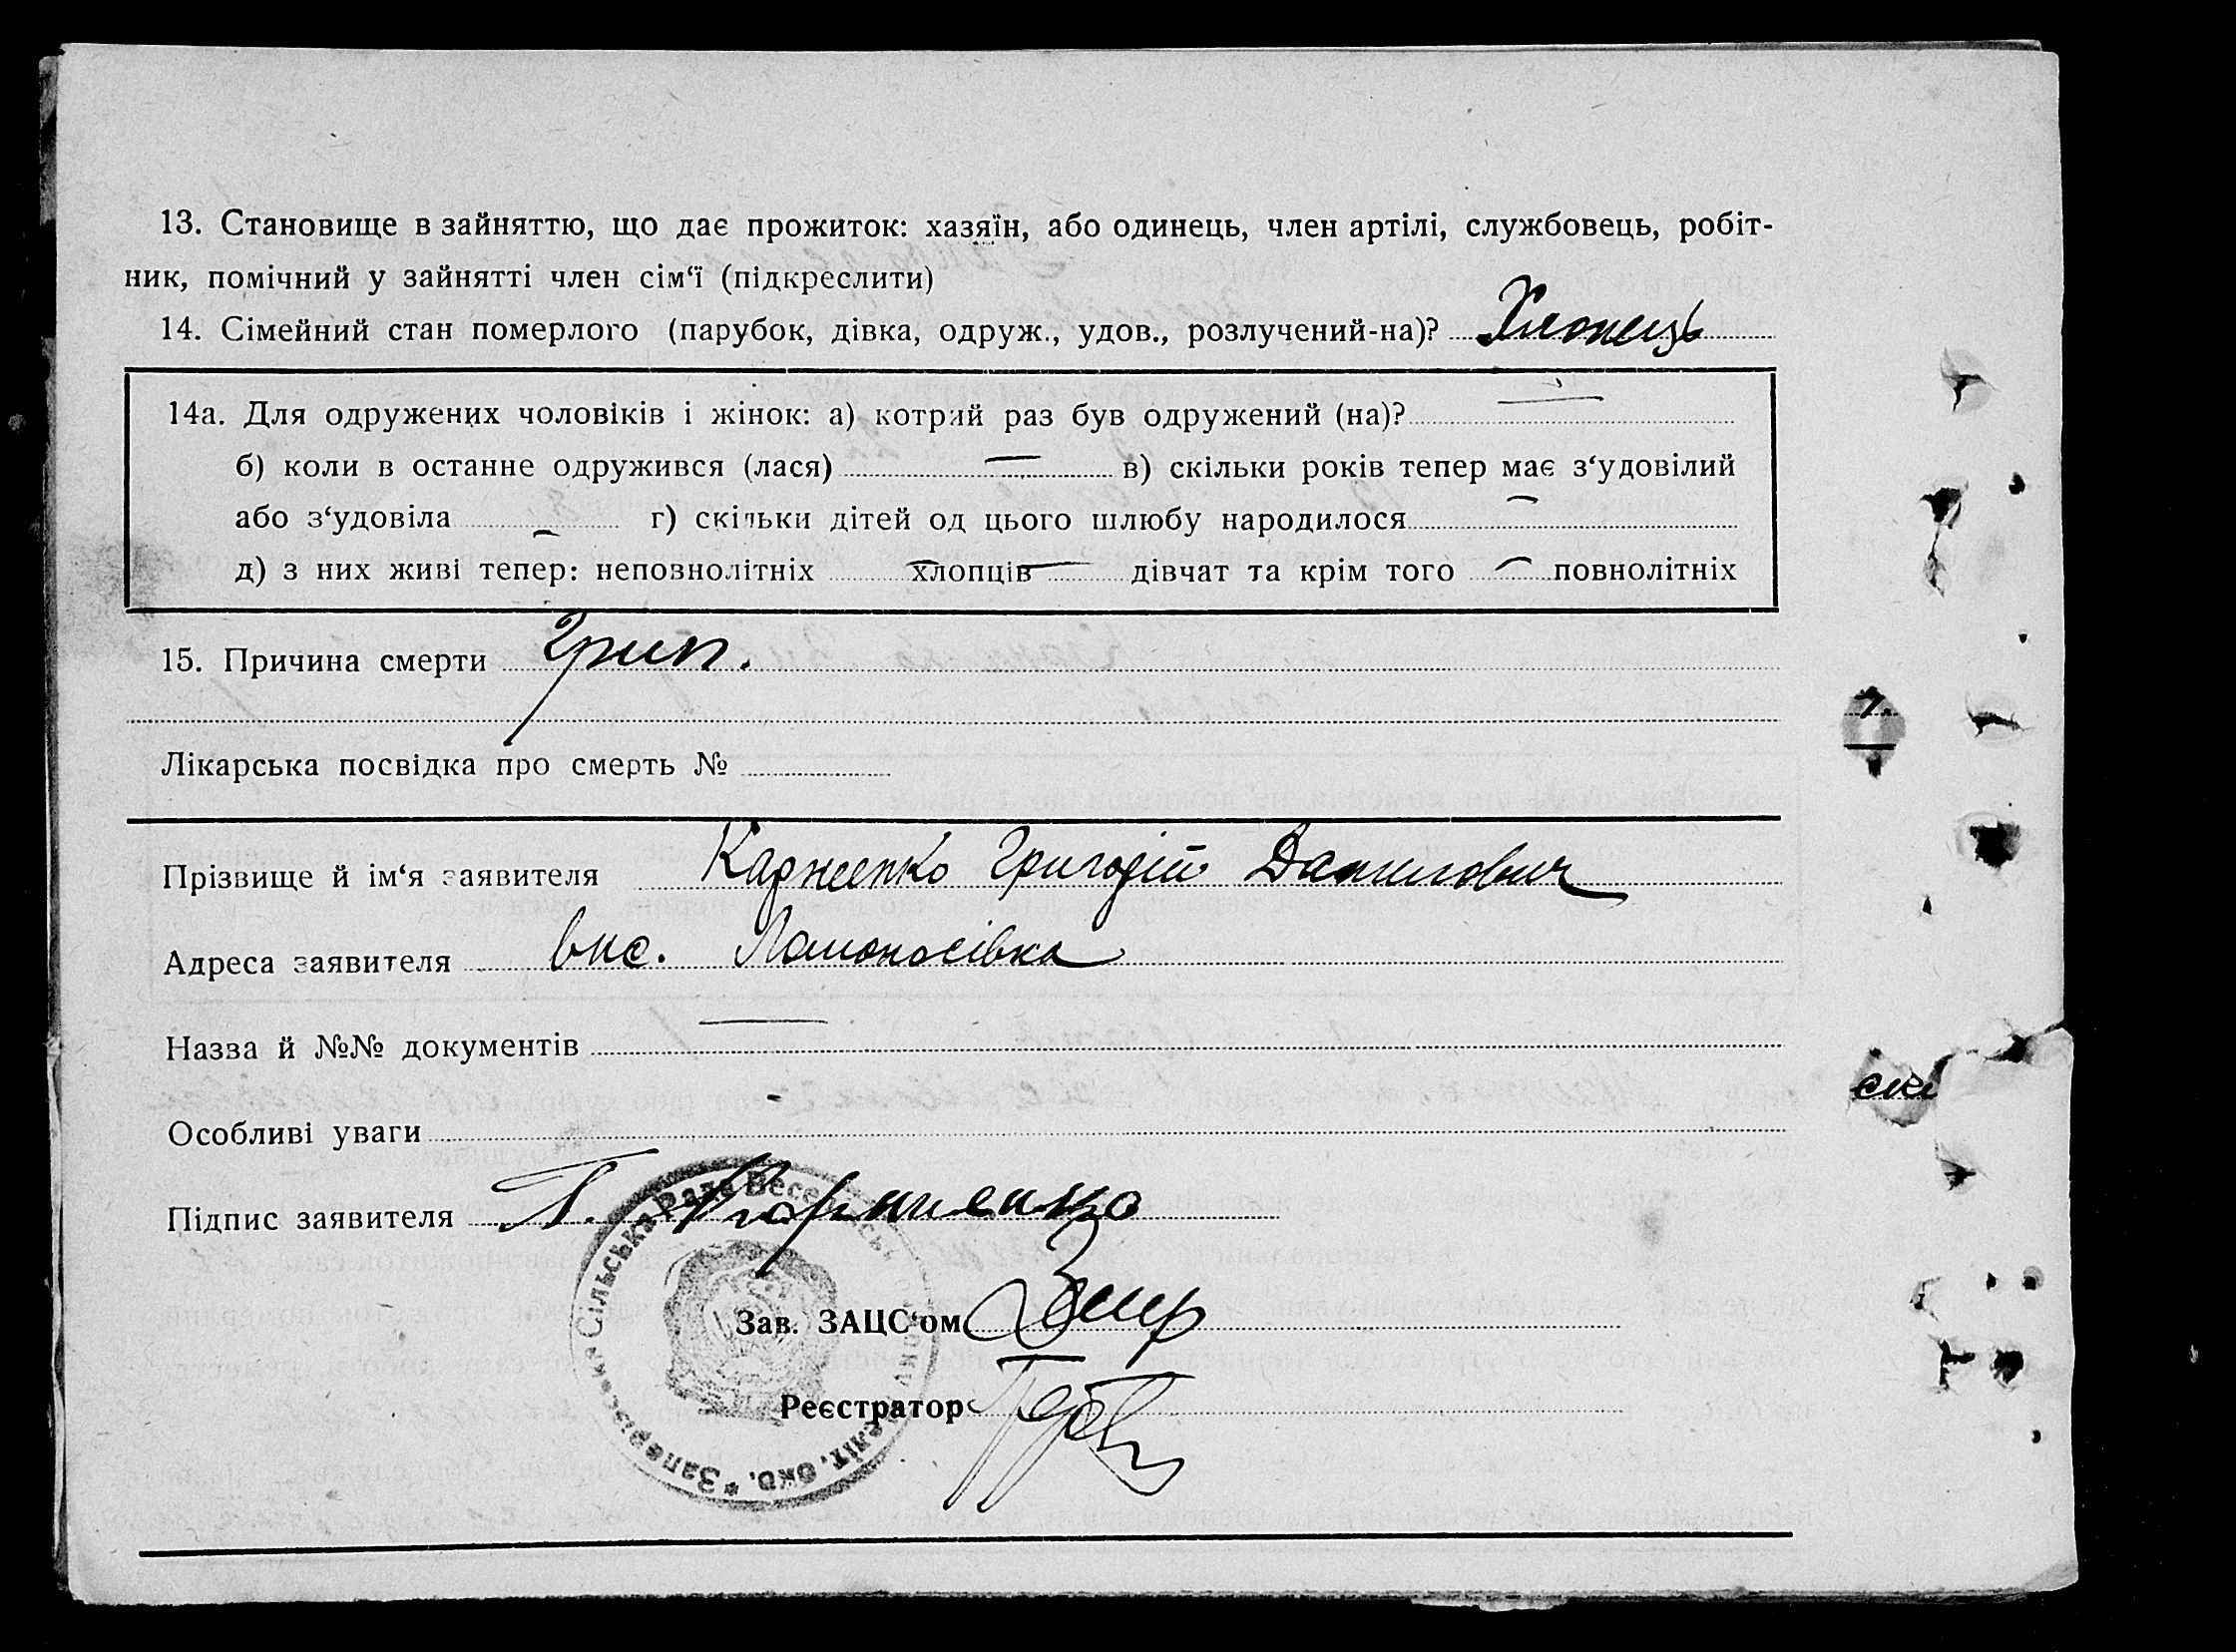 13. Становище в зайняттю, що дає прожиток: хазяїн, або одинець, член артілі, службовець, робіт-
ник, помічний у зайнятті член сім‘ї (підкреслити)
14. Сімейний стан померлого (парубок, дівка, одруж., удов., розлучений-на)? Хлопець
14а. Для одружених чоловіків і жінок: а) котрий раз був одружений (на)? —
б) коли в останне одружився (лася) — в) скільки років тепер має з‘удовілий
або з‘удовіла — г) скільки дітей од цього шлюбу народилося —
д) з них живі тепер: неповнолітніх хлопців — дівчат та крім того — повнолітніх
15. Причина смерти Грип.
Лікарська посвідка про смерть №
Прізвище й ім‘я заявителя Карненко Григорій Данилович
Адреса заявителя вис. Ломоносівка
Назва й №№ документів —
Особливі уваги
Підпис заявителя
Зав. ЗАЦС‘ом
Реєстратор
Сільська Рада